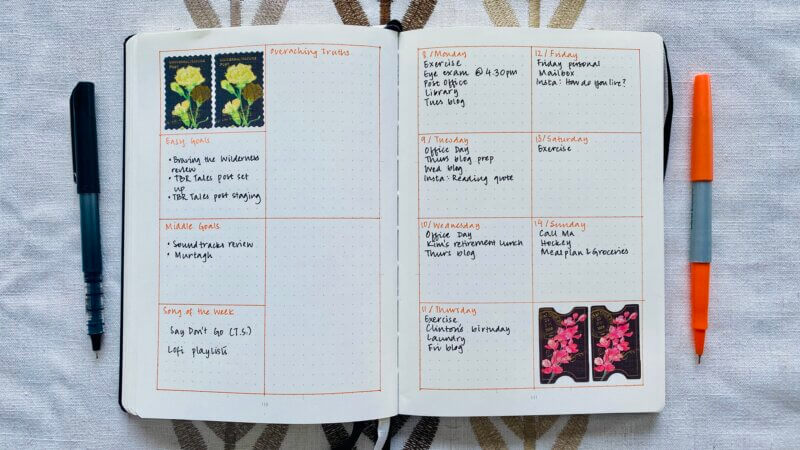 Overaching Truths
Easy Goals
• Braving the Wilderness
review
• TBR Tales post set
up
• TBR Tales post staging
Middle Goals
• Soundtracks review
• Murtagh
Song of the Week
Say Don't Go (T.S.)
Lofi playlists
8/Monday
Exercise
Eye exam @ 4.30pm
Post Office
Library
Tues blog
9/Tuesday
Office Day
Thurs blog prep
Wed blog
Insta: Reading quote
10/Wednesday
Office Day
Kim's retirement lunch
Thurs blog
11/Thursday
Exercise
Clinton's birthday
Laundry
Fri blog
12/Friday
Friday personal
Mailbox
Insta: How do you live?
13/Saturday
Exercise
14/Sunday
Call Ma
Hockey
Mealplan & Groceries